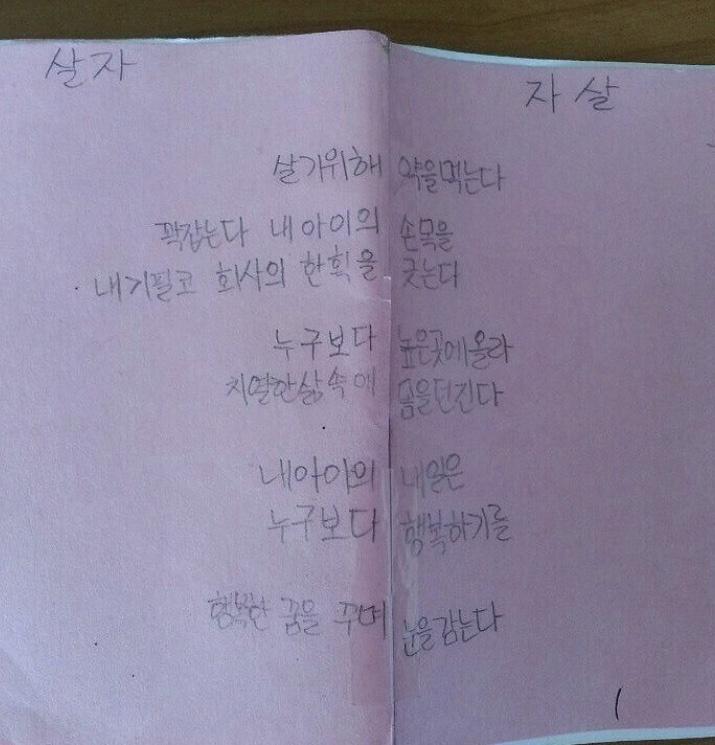 살자 자살
살기위해 약을먹는다
꽉잡는다 내 아이의 손목을
내기필코 회사의 한획을 긋는다
누구보다 높은곳에올라
치열한삶속에 몸을던진다
내아이의 내일은
누구보다 행복하기를
행복한 꿈을 꾸며 눈을감는다